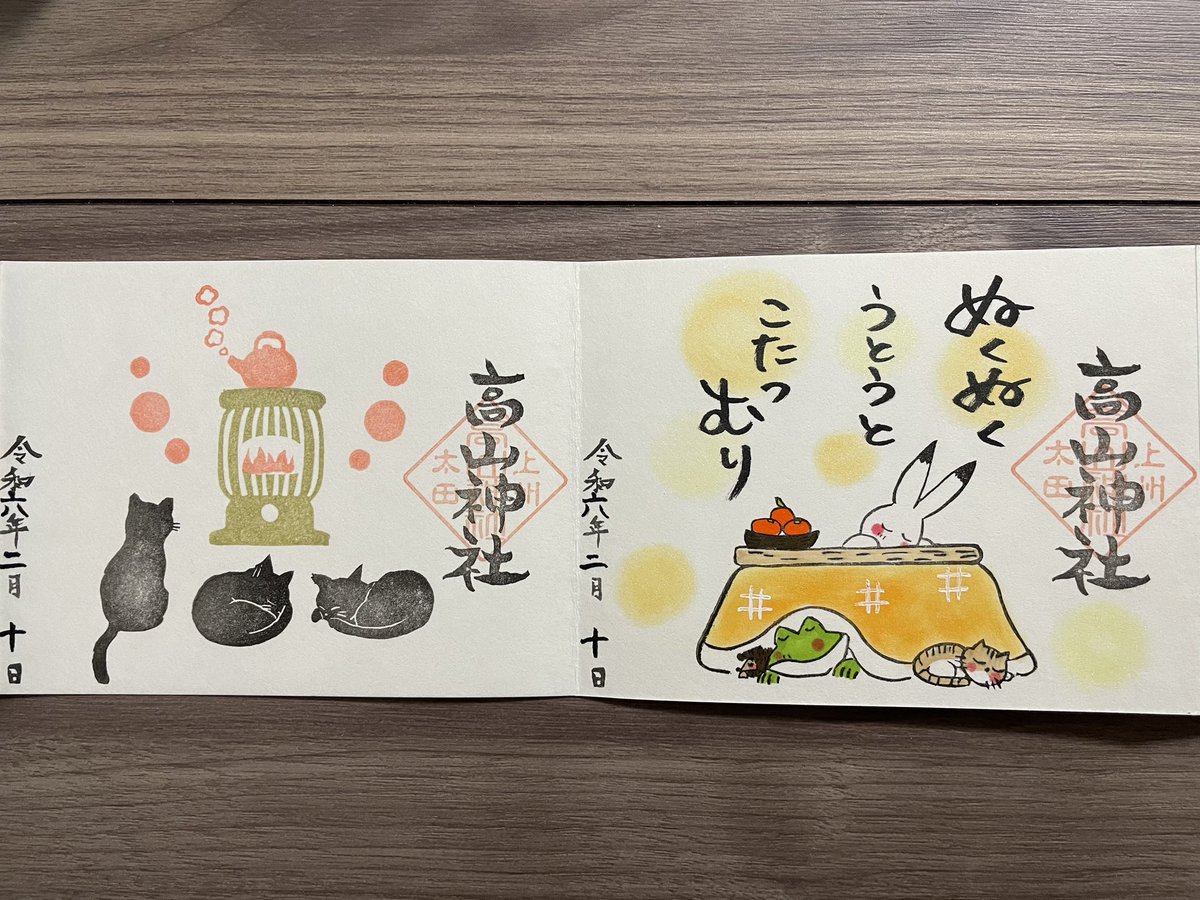 高山神社
上州
太田
令和六年二月 十日
ぬくぬく
うとうと
こたつ
むり
高山神社
上州
太田
令和六年二月 十日